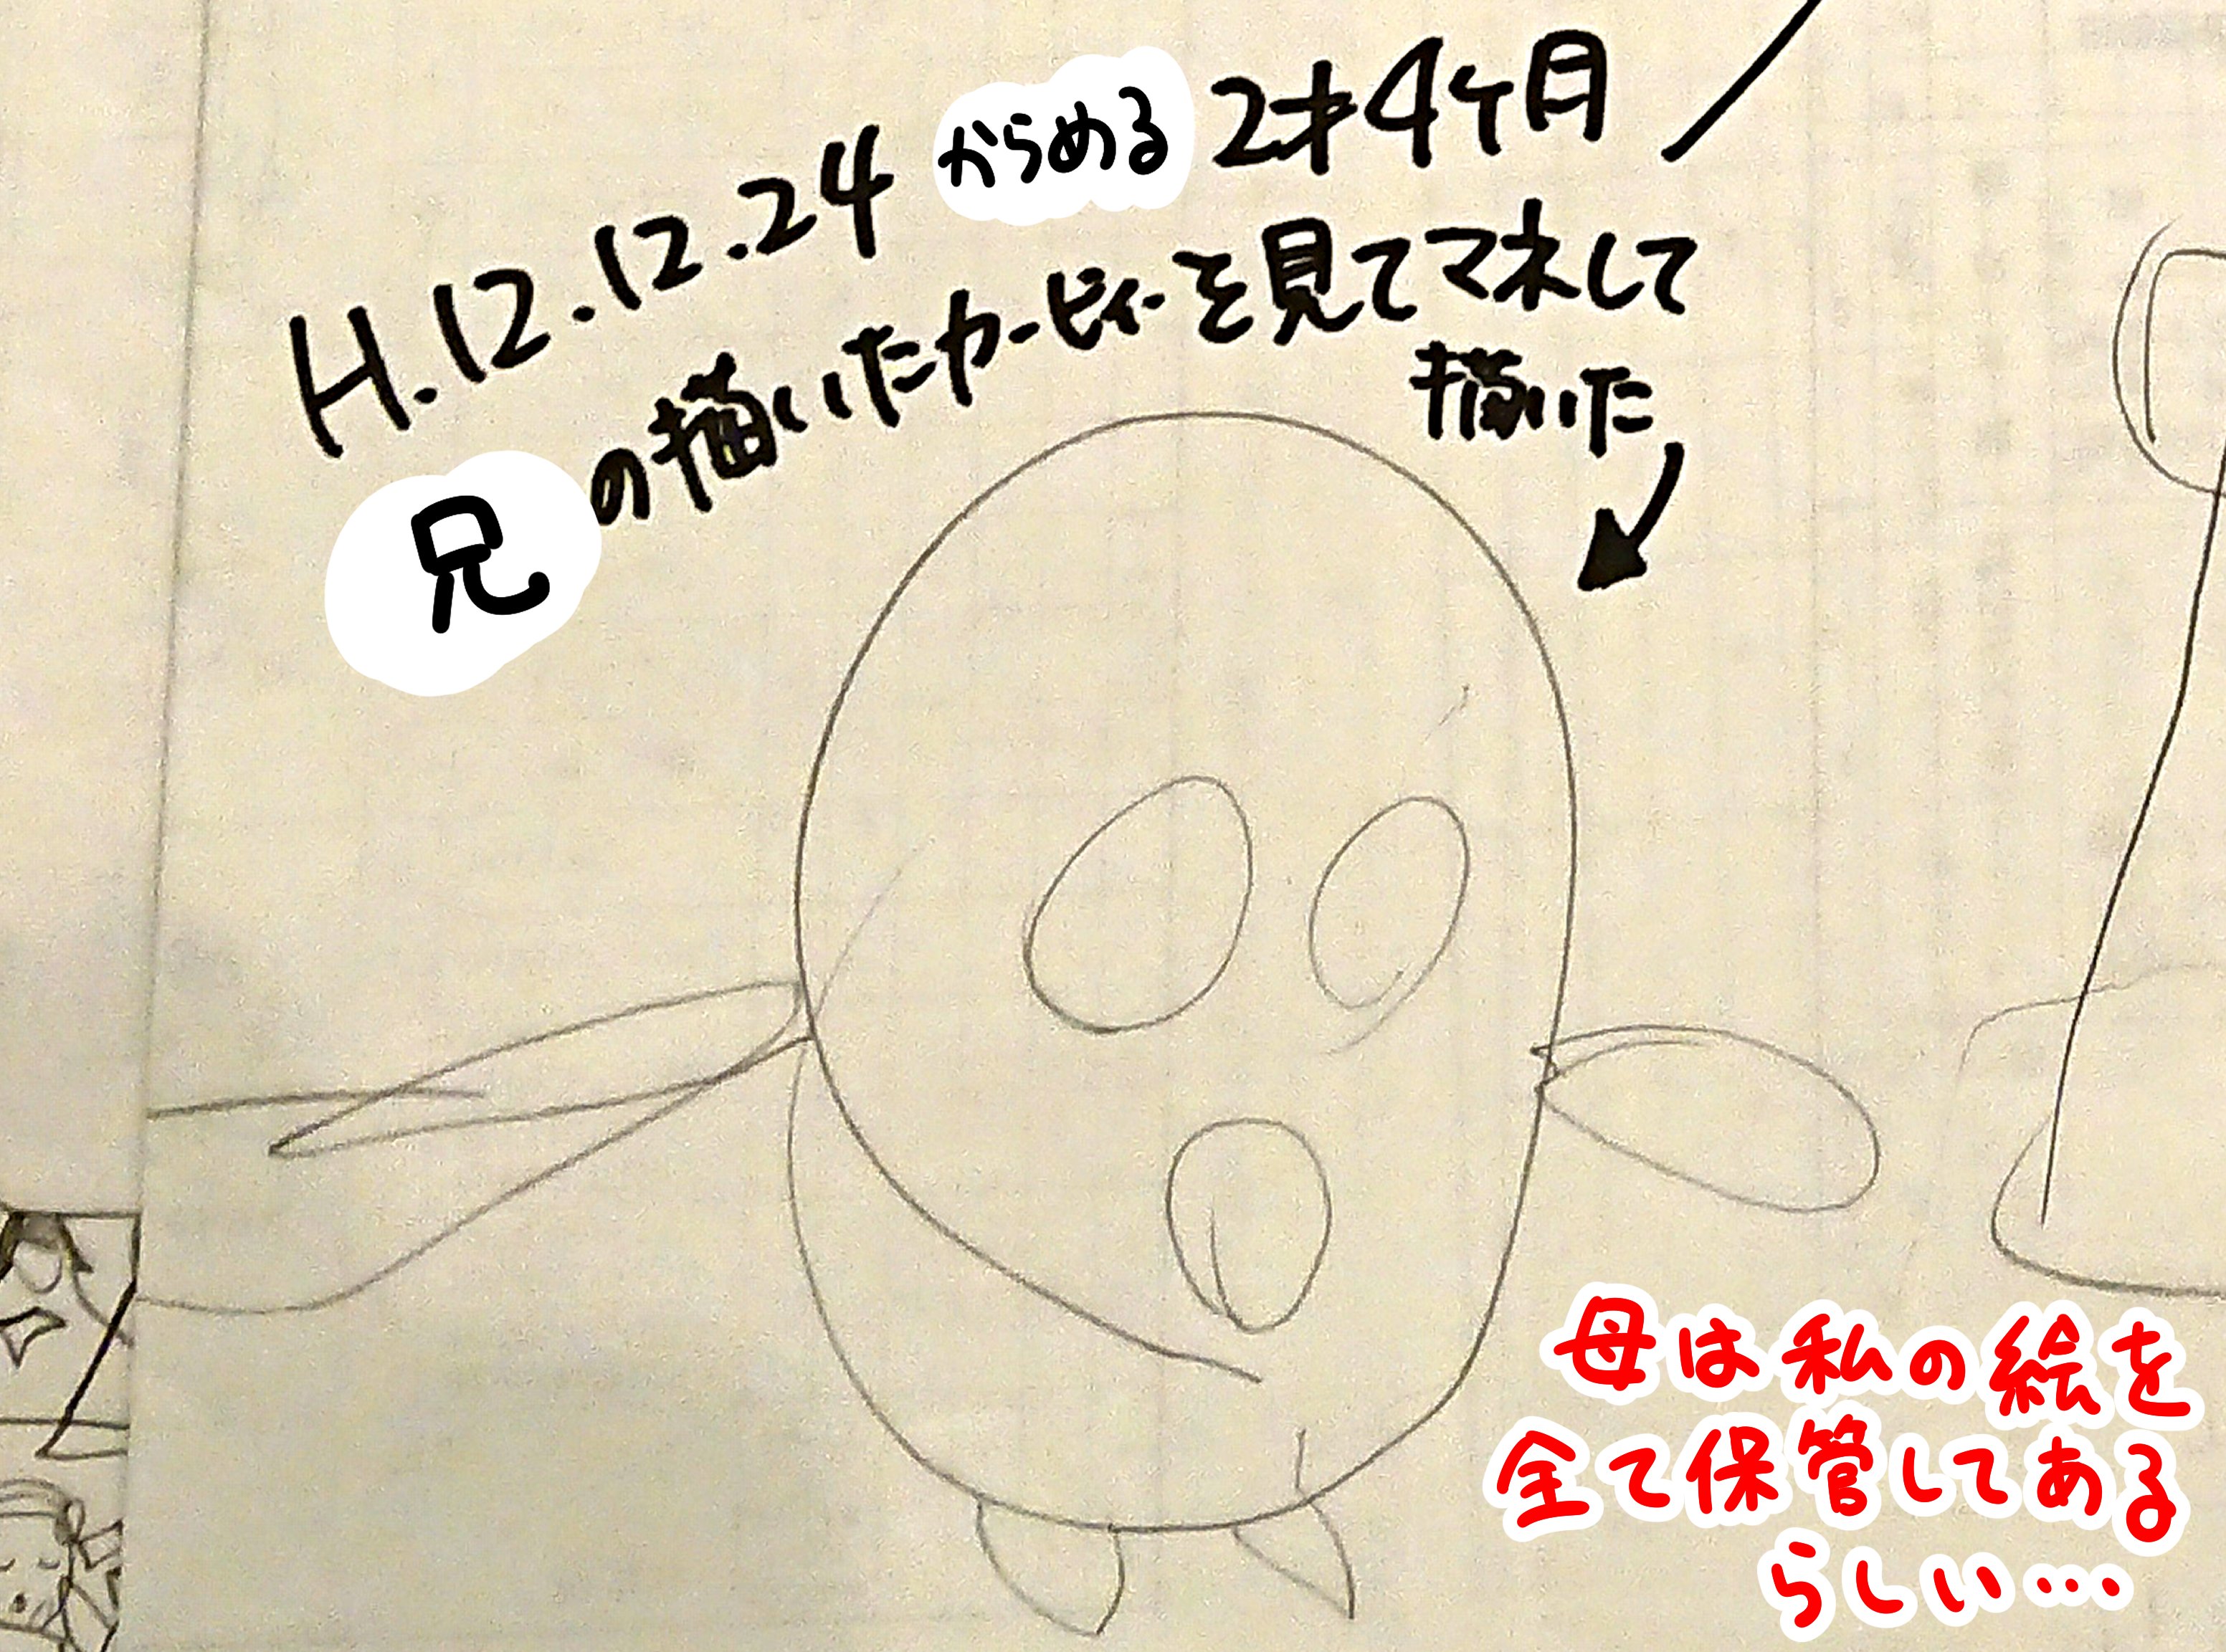 H.12.12.24 からめる 2才4ヶ月
兄の描いたカービィーを見てマネして
描いた
母は私の絵を
全て保管してある
らしい…